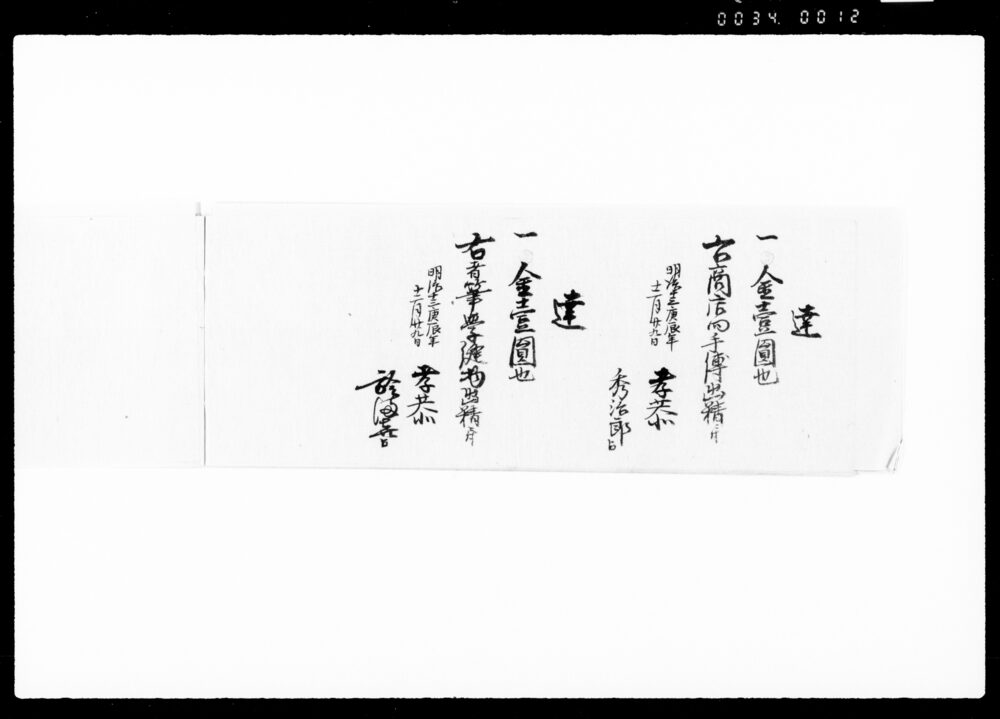 0034 0012
達
一 金壹圓也
右商店向手傳出精ニ付
明治十三庚辰年
十二月廿九日
孝恭
秀治郎
達
一 金壹圓也
右者筆学縫物出精ニ付
明治十三庚辰年
十二月廿九日
孝恭